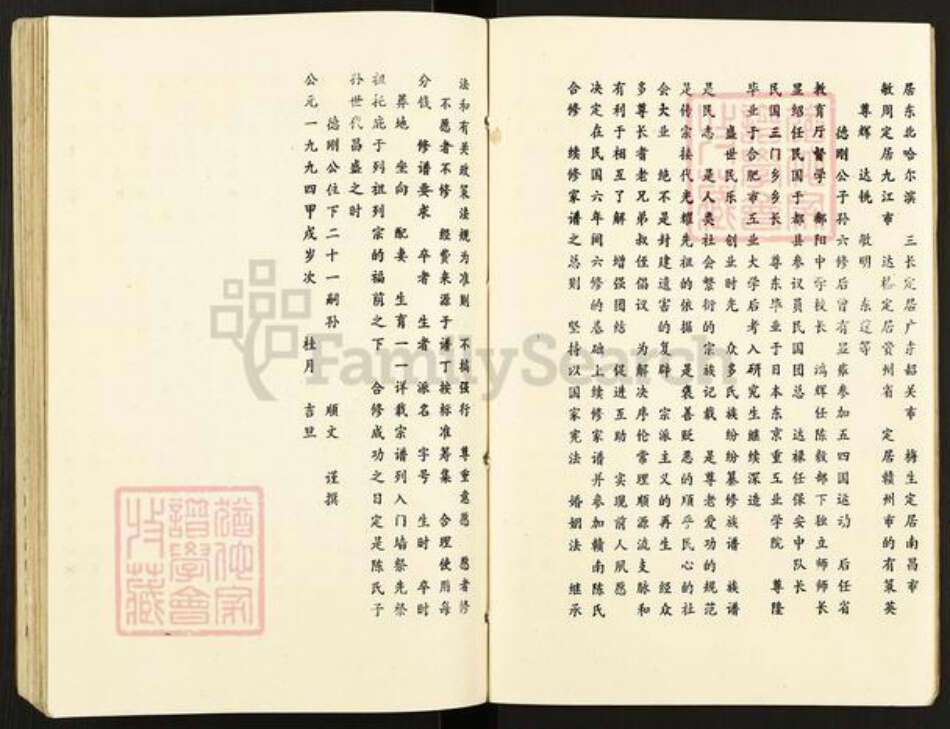 居东北哈尔滨　三长定居广东韶关市　梅生定居南昌市
敏周定居九江市　达榕定居贵州省　定居赣州市的有策英
尊辉　达铣　敬明　东迓等
德刚公子孙六修后曾有显雍参加五四国运动　后任省
教育厅督学　鄱阳中学校长　鸿辉任陈毅部下独立师师长
显绍任民国于都县参议员民国团总　达禄任保安中队长
民国三门乡乡长　尊东毕业于日本东京重工业学院　尊隆
毕业于合肥市工业大学后考入研究生继续深造
盛世民乐　创业时光　众多氏族纷纷纂修族谱　族谱
是民志　是人类社会繁衍的宗族记载　是尊老爱功的规范
是传宗接代光耀先祖的依据　是褒善贬恶的顺乎民心的社
会大业　绝不是封建遗害的复辟　宗派主义的再生　经众
多尊长者老兄弟叔侄倡议　为解决序伦常理顺源流支脉和
有利于相互了解　增强团结　促进互助　实现前人夙愿
决定在民国六年间六修的基础上续修家谱并参加赣南陈氏
合修　续修家谱之总则　坚持以国家宪法　婚姻法　继承
法和有关政策法规为准则　不搞强行　尊重意愿　愿者修
不愿者不修　经费来源于谱丁按标准筹集　合理使用每
分钱　修谱要求　卒者　生者　派名　字号　生时　卒时
葬地　坐向　配妻　生育一一详载宗谱列入门墙祭先祭
祖托庇于列祖列宗的福荫之下　合修成功之日定是陈氏子
孙世代昌盛之时
德刚公位下二十一嗣孙　顺文　谨撰
公元一九九四甲戌岁次　桂月　吉旦
FamilySearch